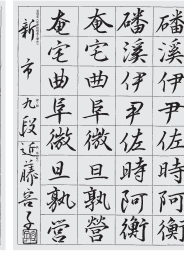 磻溪伊尹佐時阿衡
磻溪伊尹佐時阿衡
奄宅曲阜微旦孰營
奄宅曲阜微旦孰營
新市 九段 近藤 子